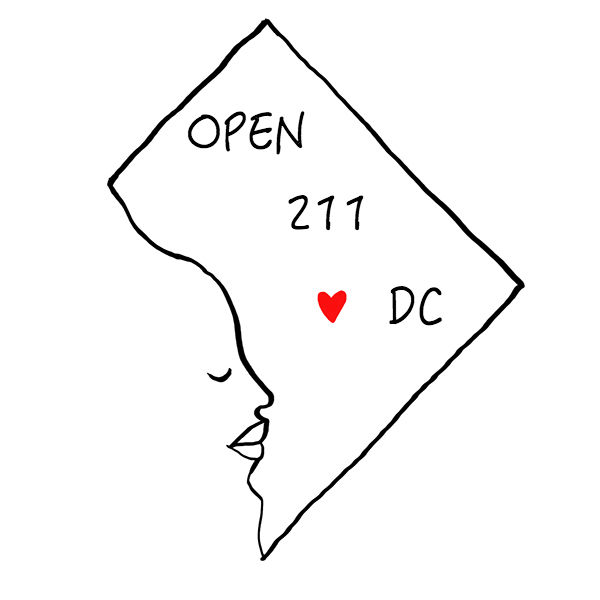 OPEN
211
DC